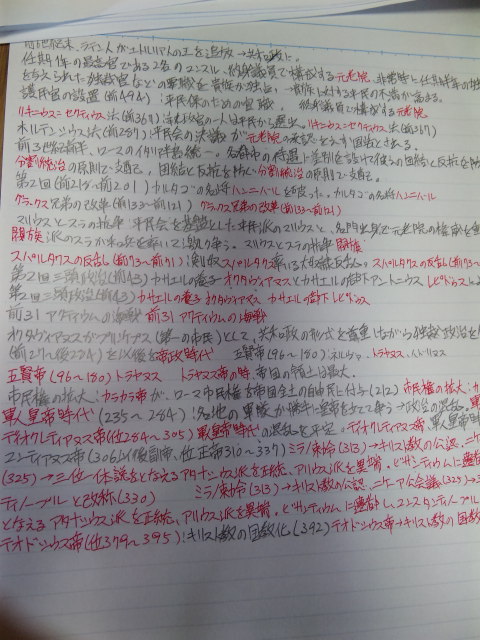 前6世紀末、ラテン人がエトルリア人の王を追放→共和政に。
任期1年の最高官である2名のコンスル、終身議員で構成する元老院、非常時に任期半年の独
を与えられた独裁官などの要職を貴族が独占。→市民に対する平民の不満が高まる。
護民官の設置(前494):平民保のための官職。終身議員で構成する元老院
リキニウス=セクスティウス法(前367)コンスルの一人は平民から選出。リキニウス=セクスティウス法(前367)
ホルテンシウス法(前287)平民会の決議が元老院の承認をえずに国法とされる。
前3世紀前半、ローマのイタリア半島統一。各都市の待遇に差別を設けて彼らの団結と反抗を防
分割統治の原則で支配。団結と反抗を防ぐ分割統治の原則で支配。
第2回(前218~前201)カルタゴの名将ハンニバルを破った。カルタゴの名将ハンニバル
グラックス兄弟の改革(前133~前121) グラックス兄弟の改革(前133~前121)
マリウスとスラの抗争 平民会を基盤とした平民派のマリウスと、名門出身で元老院の権威を重
閥族派のスラが私兵を率いて激しく争う。マリウスとスラの抗争 閥族
スパルタクスの反乱(前73~前71):剣奴スパルタクス率いる大規模反乱。スパルタクスの反乱(前73~前
第2回三頭政治(前43)カエサルの養子オクタウィアヌスとカエサルの部下アントニウス、レピドゥスによ
第2回三頭政治(前43)カエサルの養子 オクタウィアヌス カエサルの部下 レピドゥス
前31 アクティウムの海戦 前31 アクティウムの海戦
オクタウィアヌスがプリンケプス(第一の市民)として、共和政の形式を尊重しながら独裁政治を
(前27~後284)を以後を帝政時代 五賢帝(96~180):ネルウァ、トラヤヌス、ハドリアヌス
五賢帝(96~180) トラヤヌス トラヤヌス帝の時 帝国の領土は最大。
市民権の拡大:カラカラ帝が、ローマ市民権を帝国全土の自由民に付与(212) 市民権の拡大:カ
軍人皇帝時代(235~284):各地の軍隊が勝手に皇帝をたてて争う→政治の混乱。軍
ディオクレティアヌス帝(位284~305)軍人皇帝時代の混乱を平定。ディオクレティアヌス帝、軍人皇帝時
コンスタンティヌス帝(306以後副帝、位正帝310~337)ミラノ勅令(313)→キリスト教の公認、ニケ
(325)→三位一体説をとなえるアタナシウス派を正統、アリウス派を異端。ビザンティウムに遷都
ティノープルと改称(330) ミラノ勅令(313)→キリスト教の公認、ニケーア会議(325)→三
となえるアタナシウス派を正統、アリウス派を異端。ビザンティウムに遷都し、コンスタンティノープル
テオドシウス帝(位379~395):キリスト教の国教化(392)テオドシウス帝→キリスト教の国教